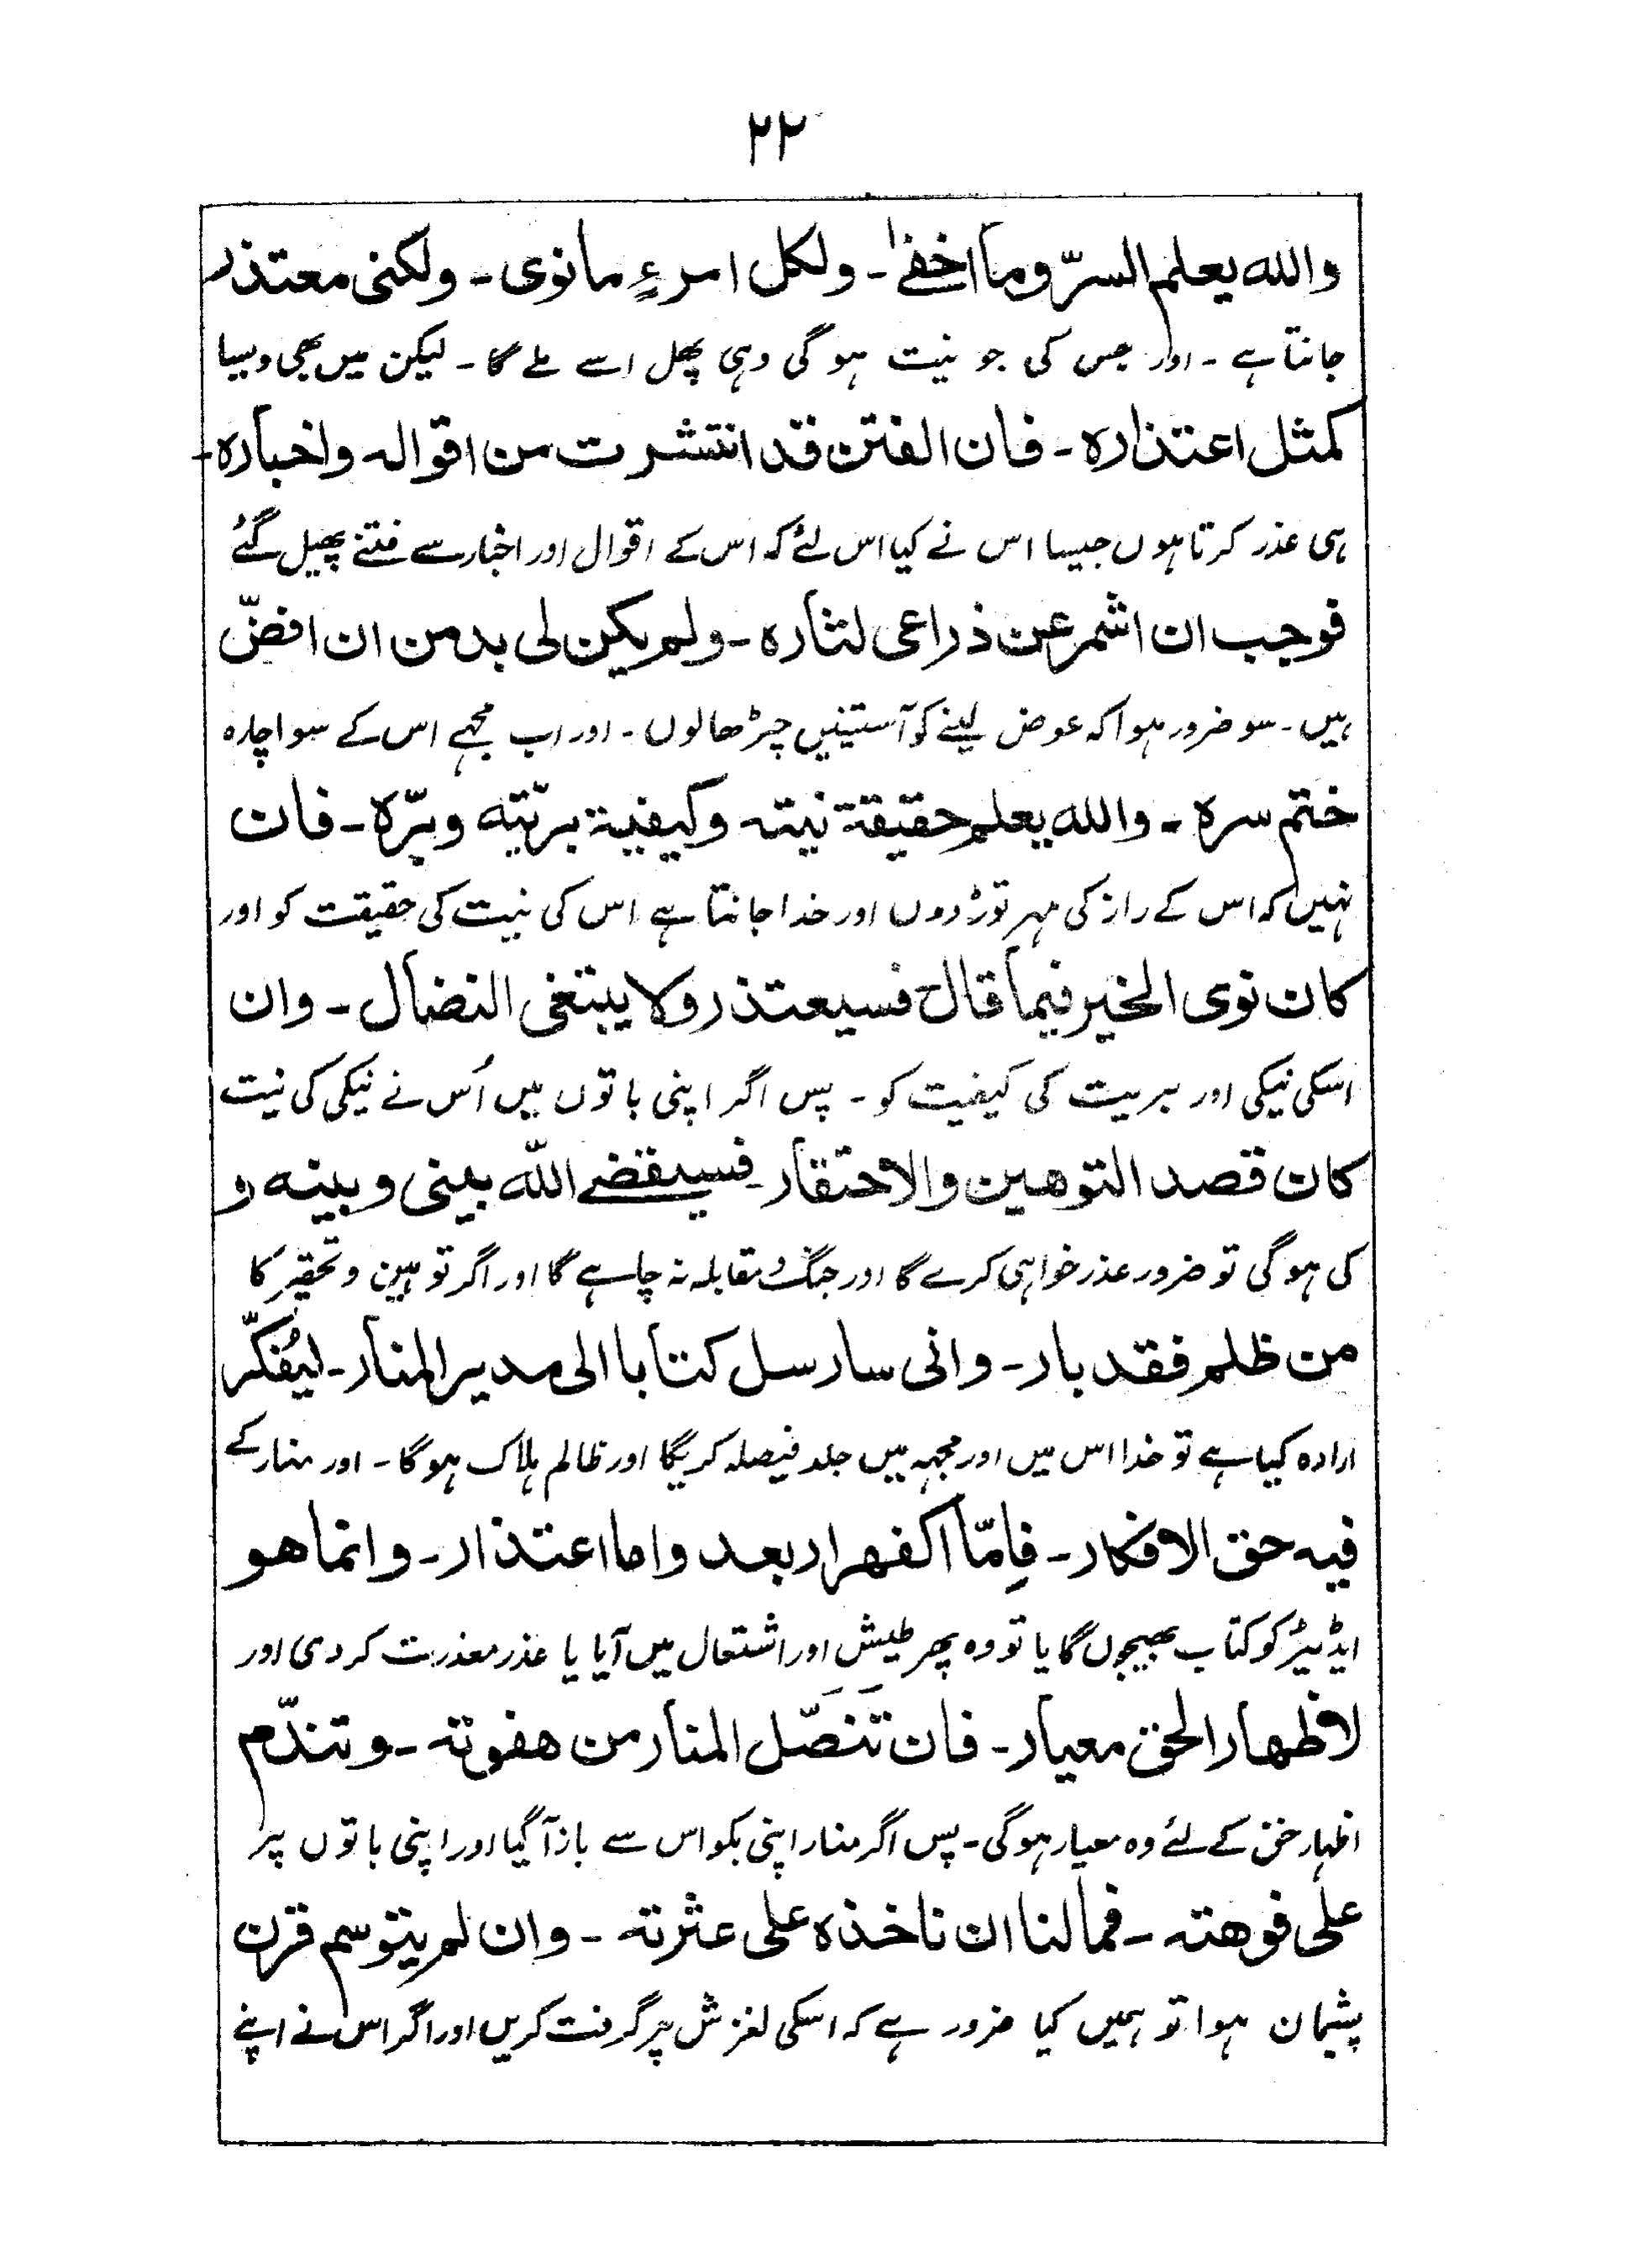 ٢٢
والله يعلم السرّ وما اخفےٰ ـ ولكل امرءٍ ما نوى ـ ولكنى معتذر
جانتا ہے ـ اور جس کی جو نیت ہو گی وہی پھل اسے ملے گا ـ لیکن میں بھی ویسا
كمثل اعتذاره ـ فان الفتن قد انتشرت من اقواله واخباره ـ
ہی عذر کرتا ہوں جیسا اس نے کیا اس لئے کہ اس کے اقوال اور اخبار سے فتنے پھیل گئے
فوجب ان اشمر عن ذراعى لثاره ـ ولم يكن لى بد من ان افضّ
ہیں ـ سو ضرور ہوا کہ عوض لینے کو آستینیں چڑھا لوں ـ اور اب مجہے اس کے سوا چارہ
ختم سره ـ والله يعلم حقيقة نيته وكيفية بريّته وبرّه ـ فان
نہیں کہ اس کے راز کی مہر توڑ دوں اور خدا جانتا ہے اس کی نیت کی حقیقت کو اور
كان نوى الخير فيما قال فسيعتذر ولا يبتغى النضال ـ وان
اسکی نیکی اور بریت کی کیفیت کو ـ پس اگر اپنی باتوں میں اُس نے نیکی کی نیت
كان قصد التوهين والاحتقار ـ فسيقضے الله بينى وبينه و
کی ہو گی تو ضرور عذر خواہی کرے گا اور جنگ و مقابلہ نہ چاہے گا اور اگر توہین و تحقیر کا
من ظلم فقد بار ـ وانى سارسل كتابا الى مدير المنار ـ ليُفكّر
ارادہ کیا ہے تو خدا اس میں اور مجہہ میں جلد فیصلہ کریگا اور ظالم ہلاک ہو گا ـ اور منار کے
فيه حق الافكار ـ فاِمّا اكفهرار بعد واما اعتذار ـ وانما هو
ایڈیٹر کو کتاب بھیجوں گا یا تو وہ پھر طیش اور اشتعال میں آیا یا عذر معذرت کر دی اور
لاظهار الحق معيار ـ فان تَنَصّل المنار من هفوته ـ وتندّم
اظہار حق کے لئے وہ معیار ہو گی ـ پس اگر منار اپنی بکواس سے باز آ گیا اور اپنی باتوں پر
على فوهته ـ فما لنا ان ناخذه على عثرته ـ وان لم يتوسم قرن
پشیمان ہوا تو ہمیں کیا ضرور ہے کہ اسکی لغزش پر گرفت کریں اور اگر اس نے اپنے